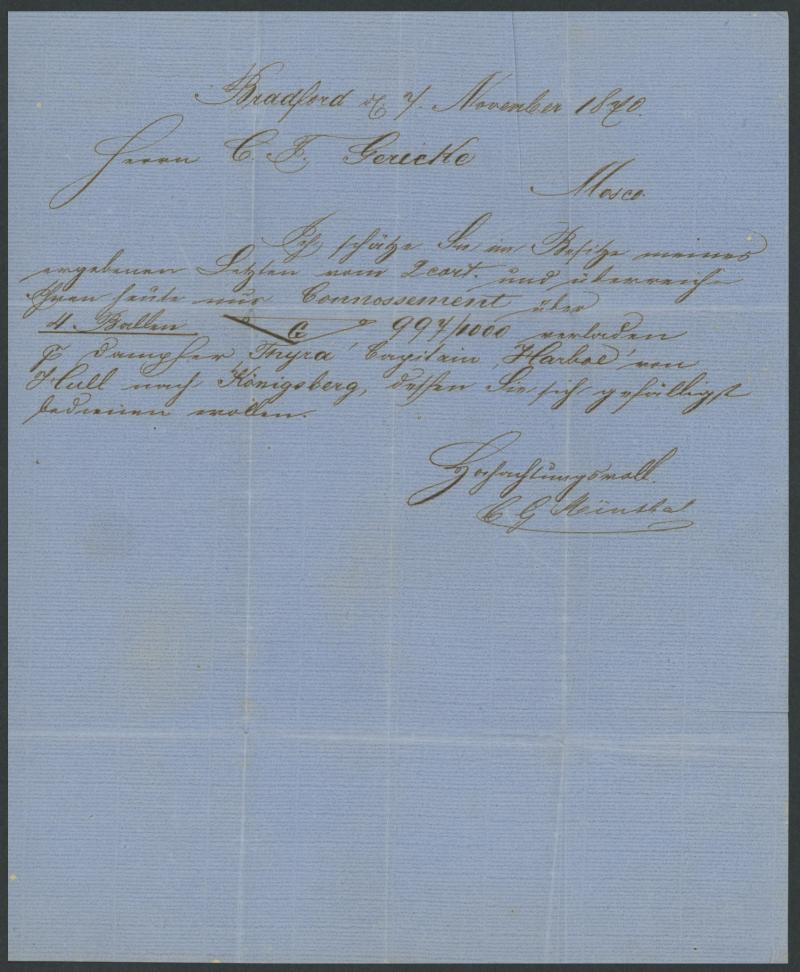 Bradford d. 7. November 1870.
Herrn C. F. Gericke
Mosco.
Ich schätze Sie im Besitze meines
ergebenen Letzten vom 2 cort. und überreiche
Ihnen heute nur Connossement über
4. Ballen G 997/1000 verladen
p Dampfer "Thyra" Capitain "Harboe" von
Hull nach Königsberg, dessen Sie sich gefälligst
bedienen wollen.
Hochachtungsvoll.
C G Münthal